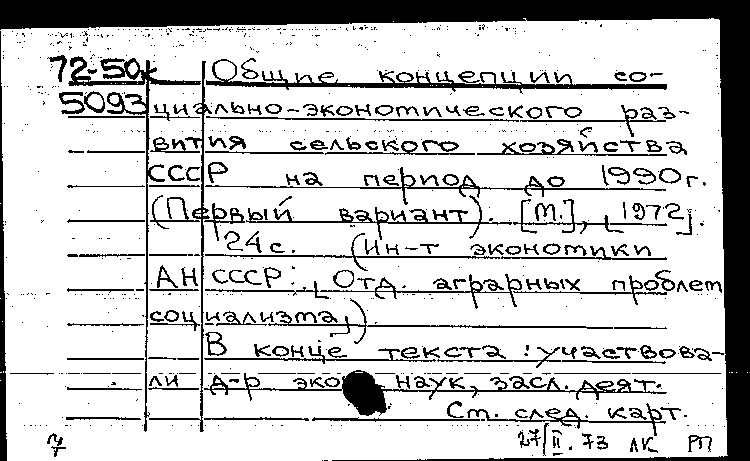 72-50к Общие концепции со-
5093 циально-экономического раз-
вития сельского хозяйства
СССР на период до 1990г.
(Первый вариант). [М.], [1972].
24с. (Ин-т экономики
АН СССР. Отд. аграрных проблем
социализма)
В конце текста: участвова-
ли д-р наук, засл. деят.
См. след. карт.
27/II. 73 ЛК РП